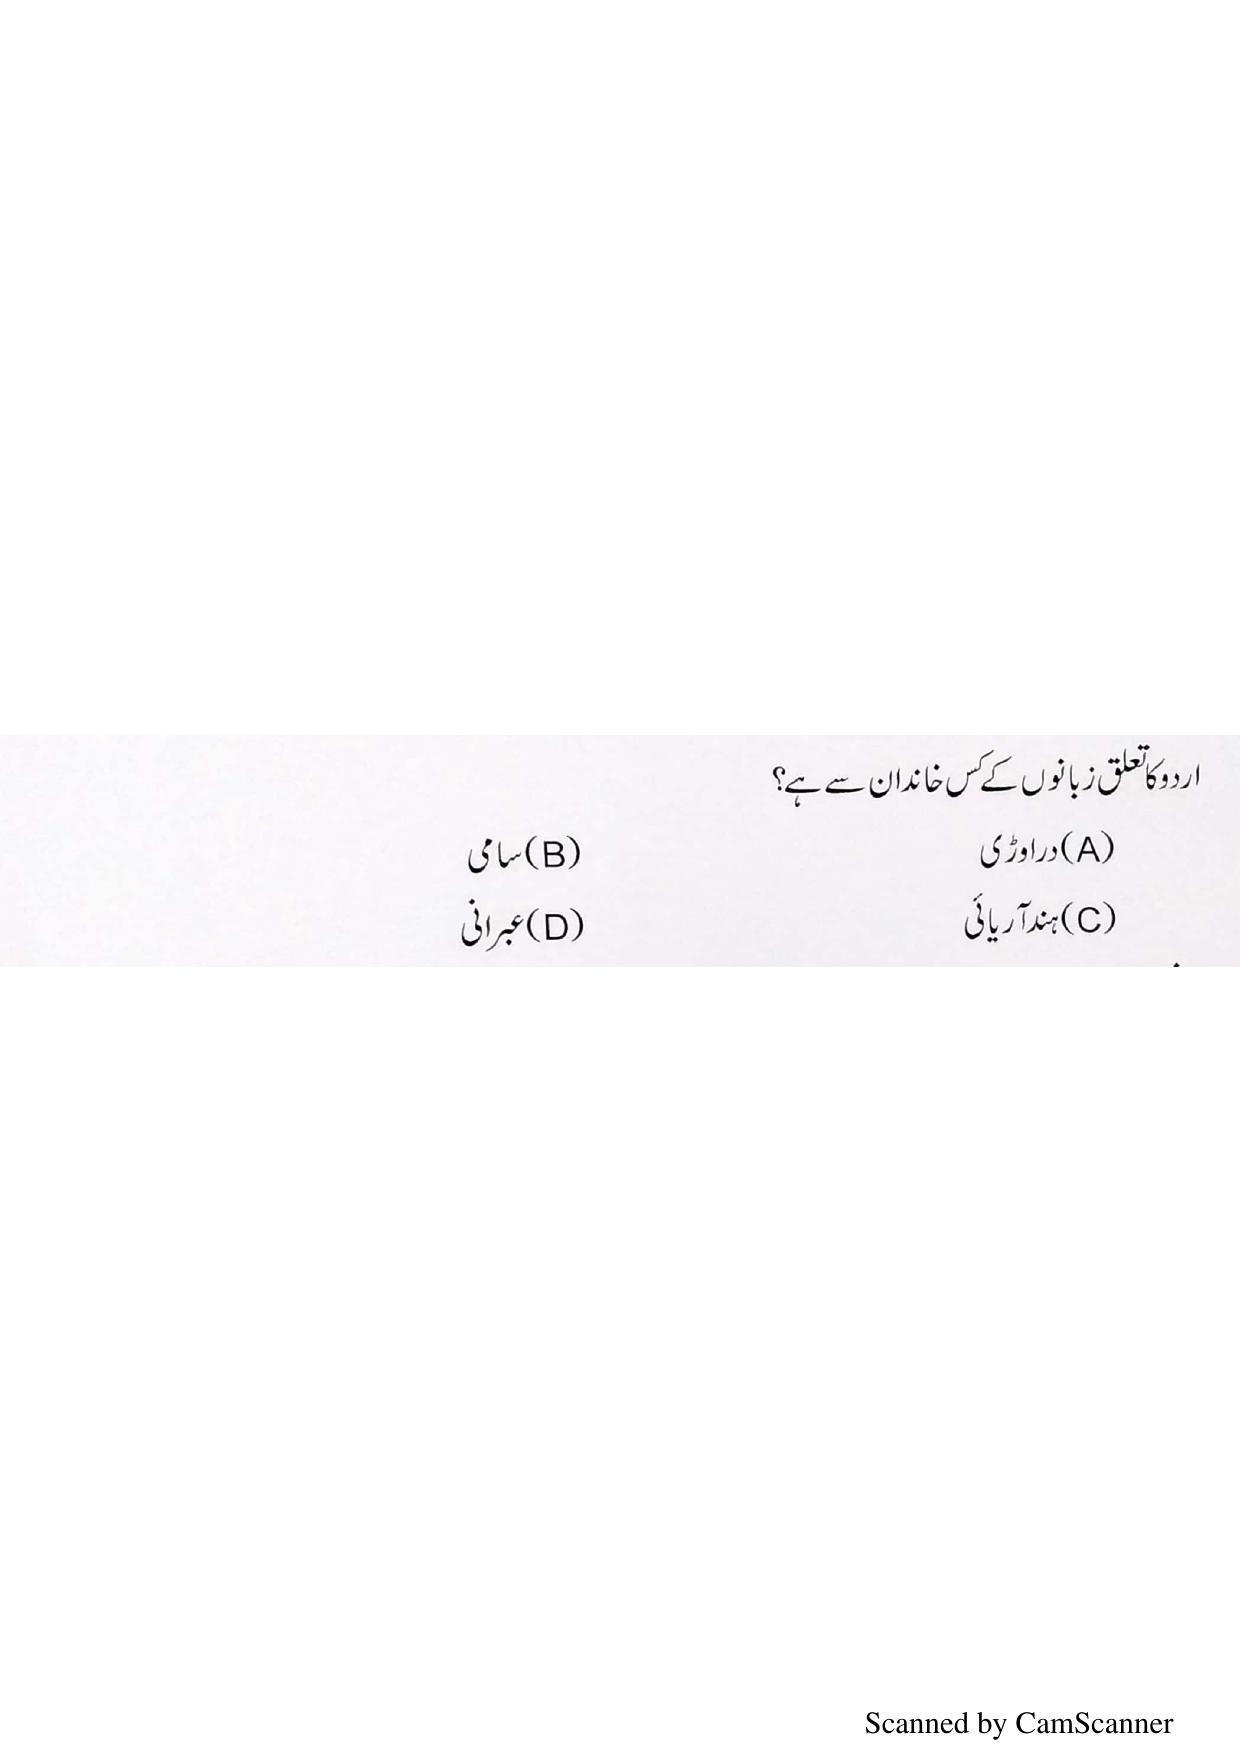 اردو کا تعلق زبانوں کے کس خاندان سے ہے؟
(A) دراوڑی (B) سامی
(C) ہند آریائی (D) عبرانی
Scanned by CamScanner